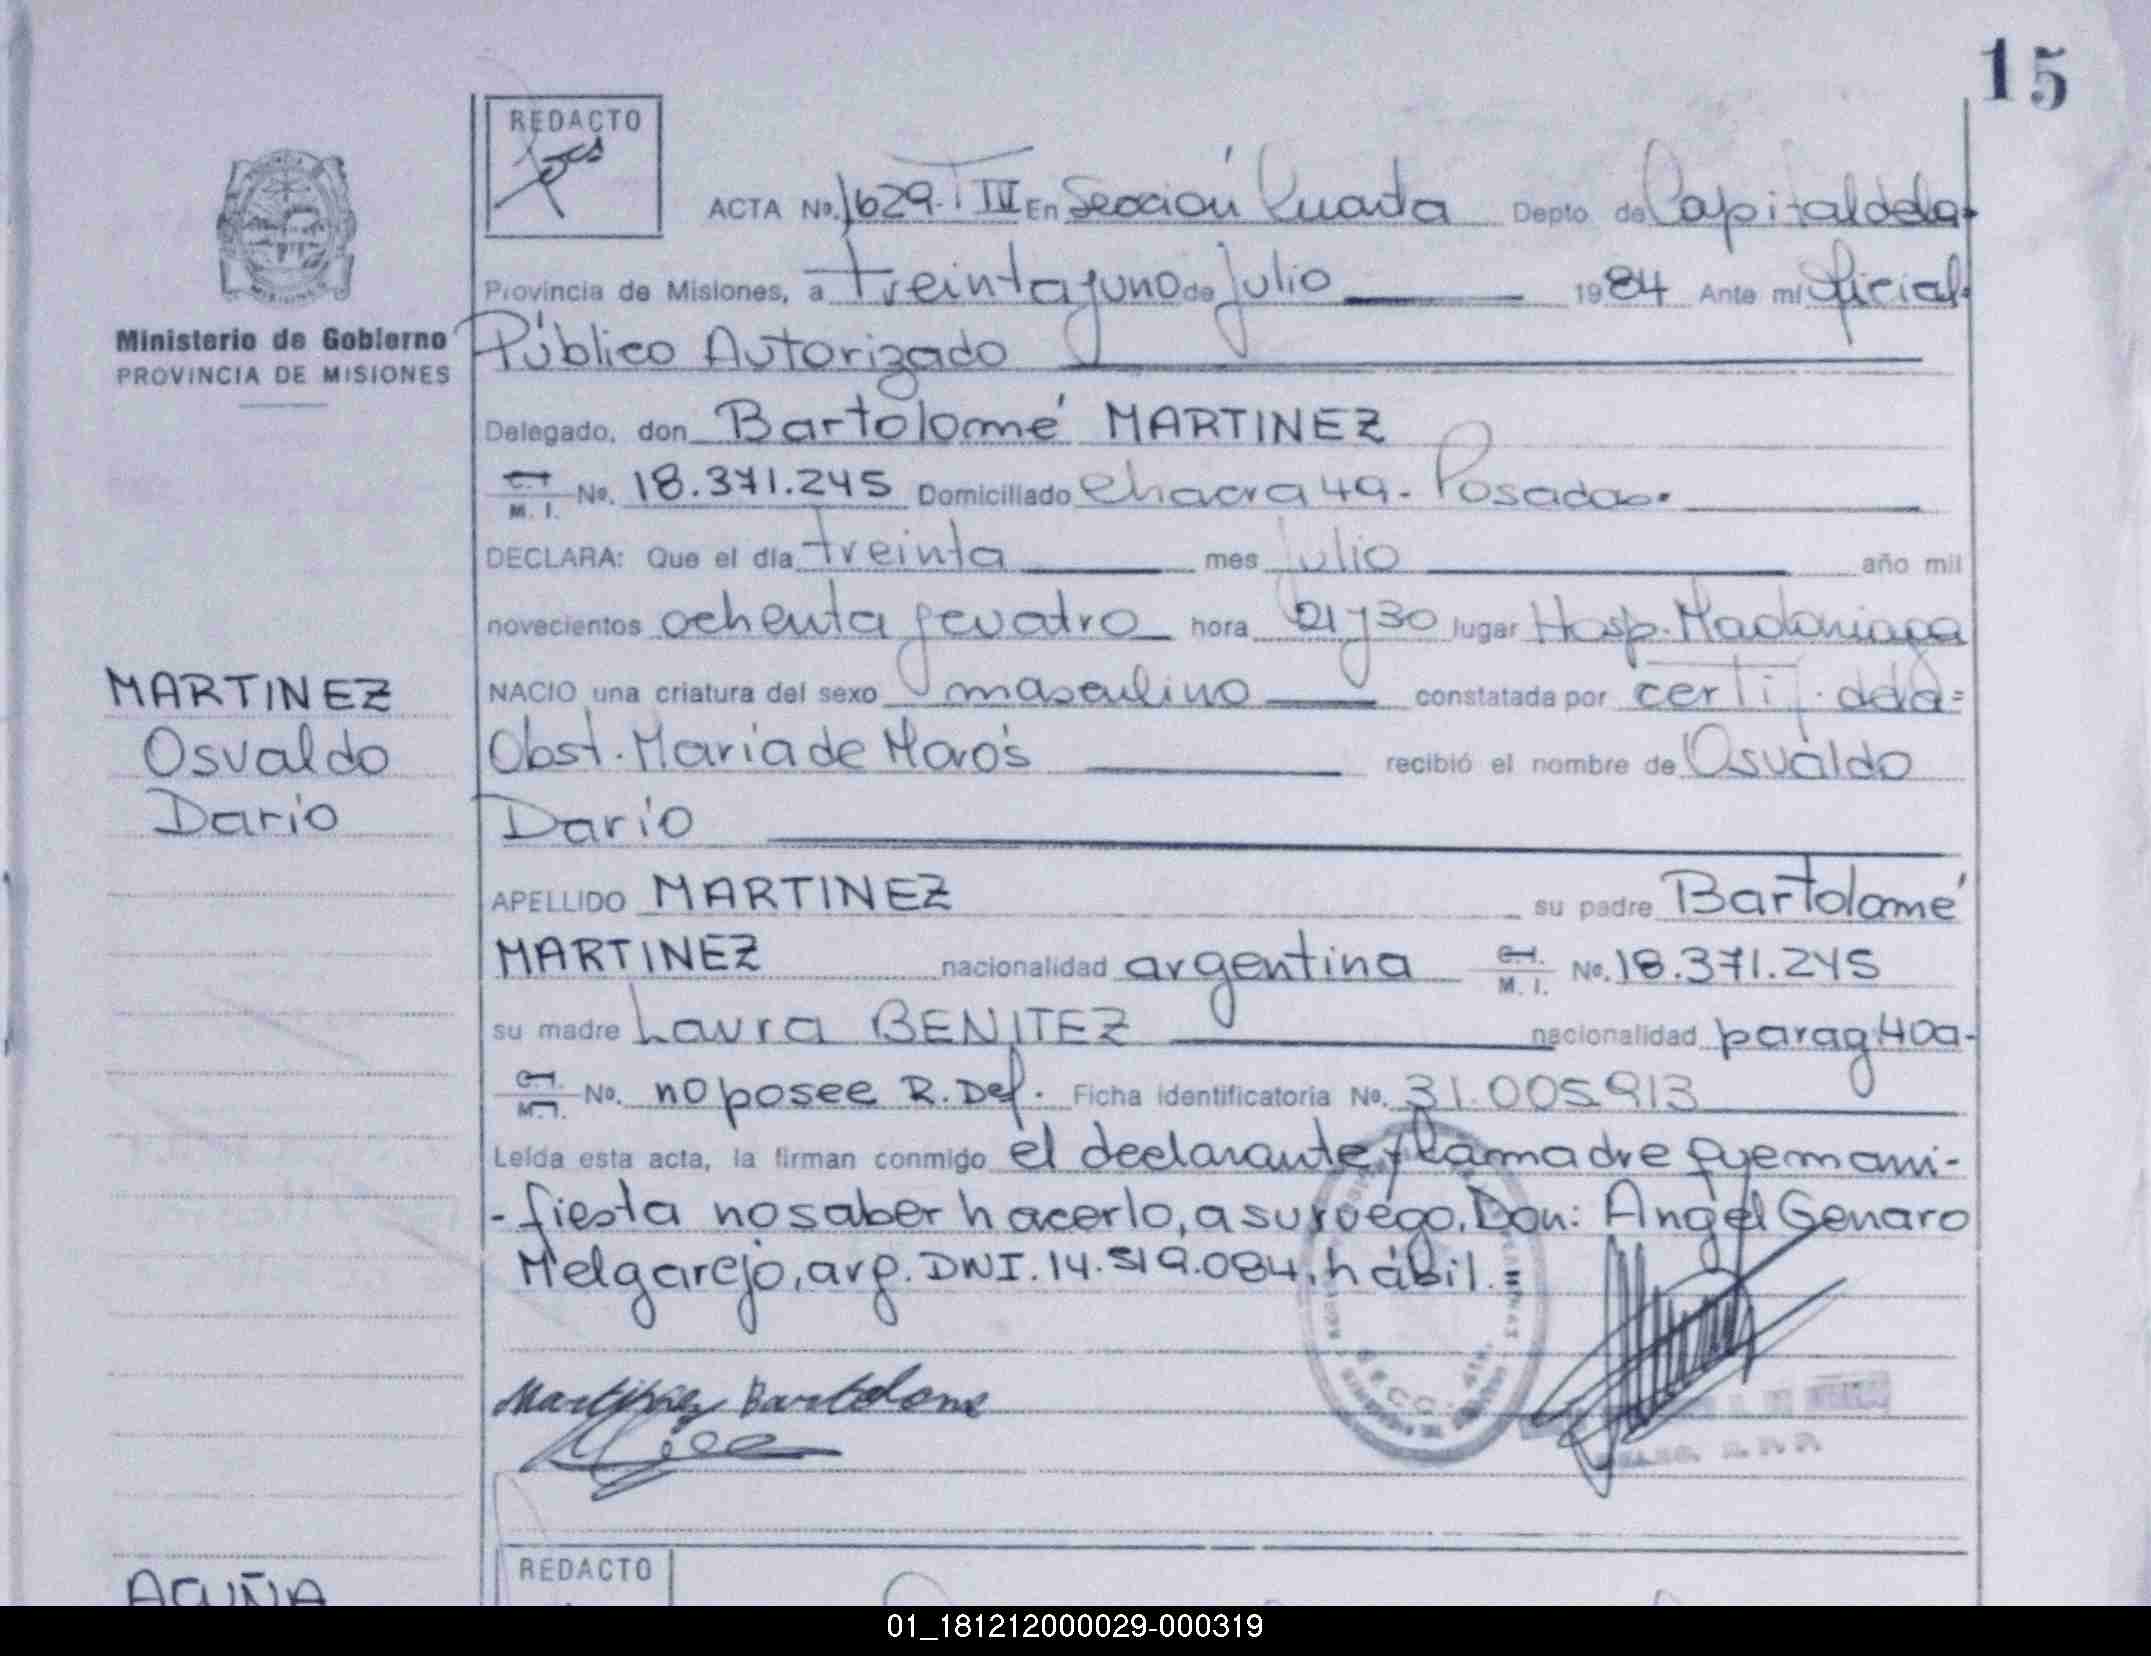 15
REDACTO
ACTA No. 1629. T III En Sección Cuarta Depto de Capital de la
Provincia de Misiones, a treinta y uno de julio 1984 Ante mí Oficial
Ministerio de Gobierno
PROVINCIA DE MISIONES
Público Autorizado
Delegado, don Bartolomé MARTINEZ
C.I. M. I. No. 18.371.245 Domiciliado Chacra 49. Posadas.
DECLARA: Que el día treinta mes julio año mil
novecientos ochenta y cuatro hora 21 y 30 lugar Hosp. Madariaga
NACIO una criatura del sexo masculino constatada por certif. de la=
MARTINEZ
Osvaldo
Darío
Obst. María de recibió el nombre de Osvaldo
Darío
APELLIDO MARTINEZ su padre Bartolomé
MARTINEZ nacionalidad argentina C.I. M. I. No. 18.371.245
su madre Laura BENITEZ nacionalidad paraguaya-
C.I. M.I. No. no posee R. Def. Ficha identificatoria No. 31.005.913
Leída esta acta, la firman conmigo el declarante y la madre que mani-
-fiesta no saber hacerlo, a su ruego, Don: Angel Genaro
Melgarejo, arg. DNI. 14.519.084, hábil.=
Martinez Bartolome
SECC. 4ta.
REDACTO
ACUÑA
01_181212000029-000319